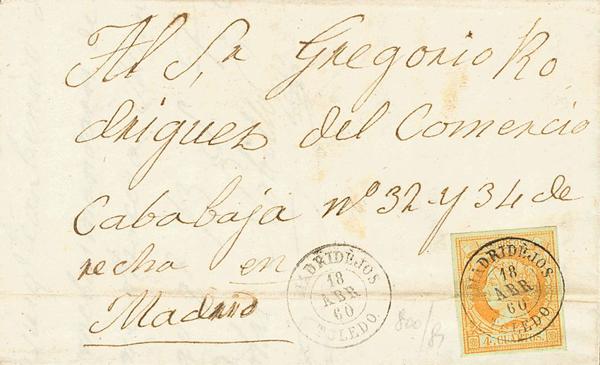 Al Sr Gregorio Ro
driguez del Comercio
Cababaja nº 32 y 34 de
recha en
Madrid
MADRIDEJOS
18
ABR
60
TOLEDO.
MADRIDEJOS.
18
ABR
60
TOLEDO.
4 CUARTOS.